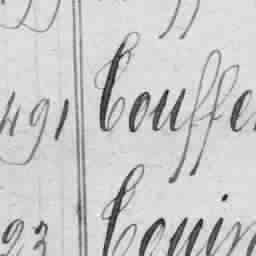 491 Couffe
23 Couin